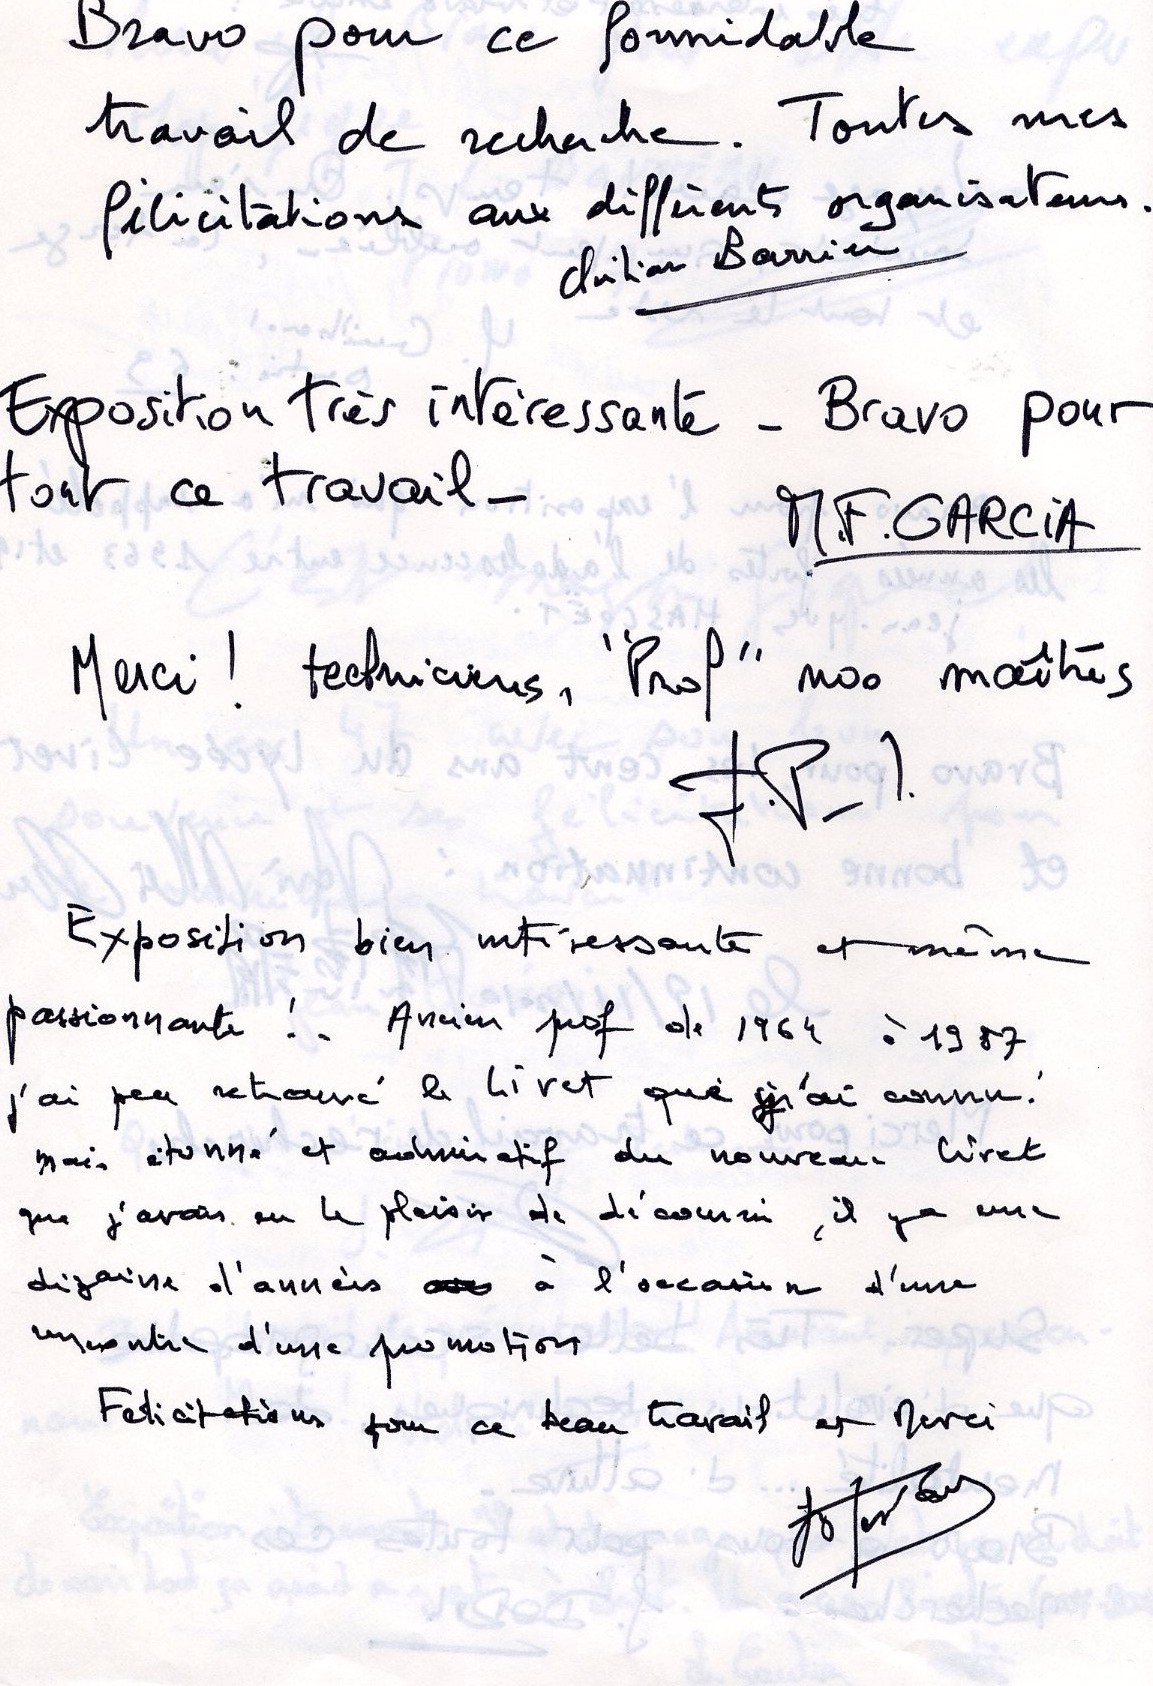 Bravo pour ce formidable
travail de recherche. Toutes mes
félicitations aux différents organisateurs.
Christian Barrier
Exposition très intéressante - Bravo pour
tout ce travail -
M.F. GARCIA
Merci ! techniciens, "Prof" nos maîtres
J.P. J.
Exposition bien intéressante et même
passionnante !. Ancien prof de 1964 à 1987
j'ai peu retrouvé le Livet que j'ai connu !
mais étonné et admiratif du nouveau Livet
que j'avais eu le plaisir de découvrir, il y a une
dizaine d'années à l'occasion d'une
rencontre d'une promotion
Félicitations pour ce beau travail et Merci